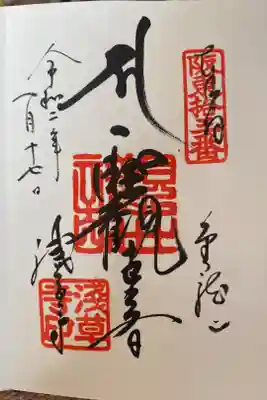 奉拝
阪東拾三番
金龍山
聖観世音
浅草寺
淺草寺印
令和二年
月十七日